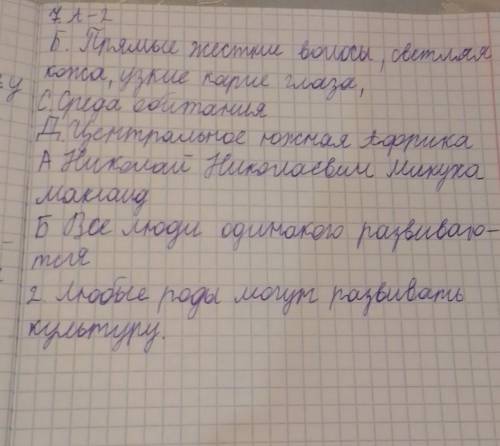 7. А-2
Б. Прямые жесткие волосы, светлая
кожа, узкие карие глаза,
С. Среда обитания
Д. Центральное южная Африка
А Николай Николаевич Микуха
маклаид
Б Все люди одинакого развиваю-
тся
2. Любые роды могут развивать
культуру.